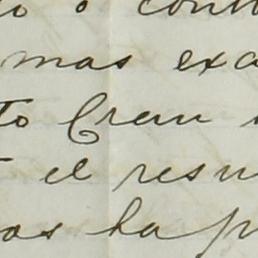 o cont
mas exa
to Crem
t el resu
os ha p